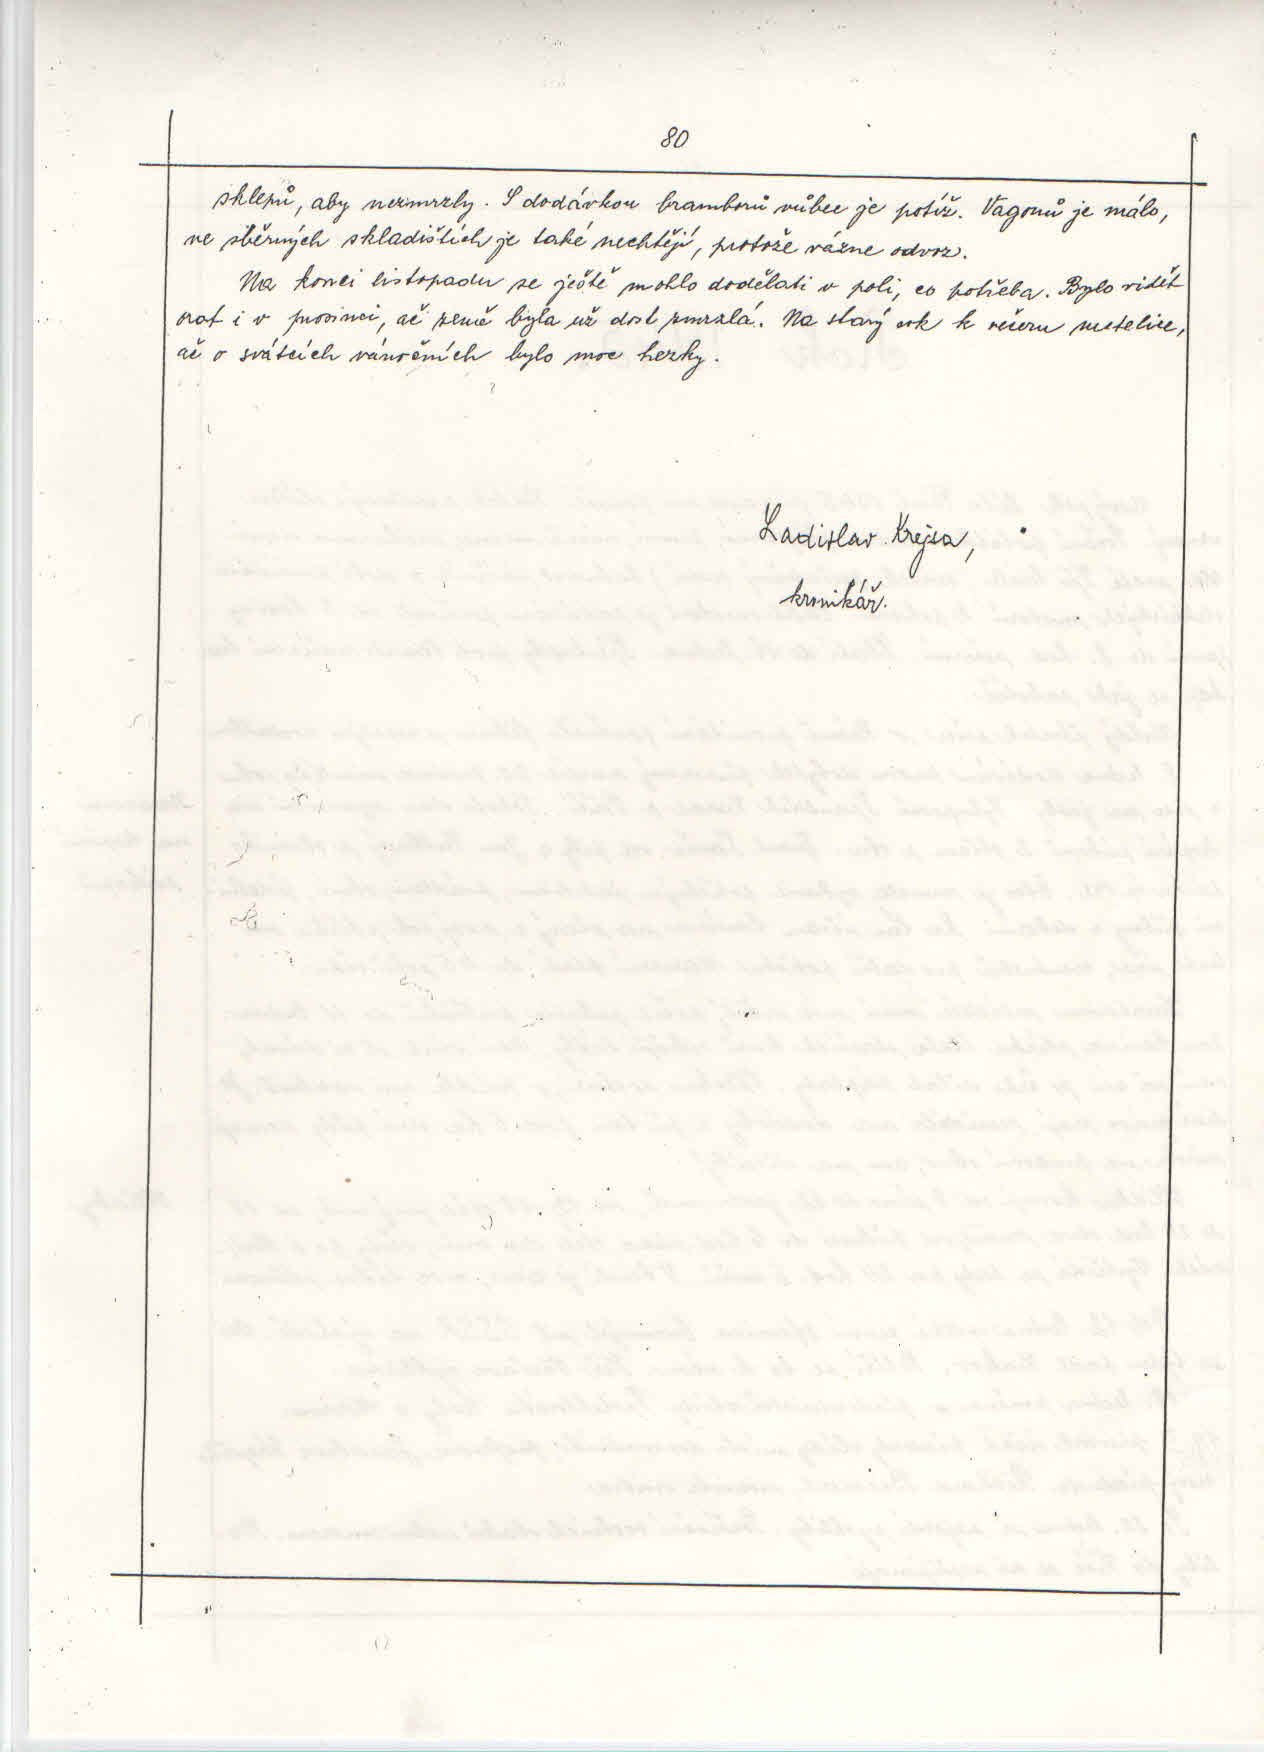 80
sklepů, aby nezmrzly. S dodávkou bramborů vůbec je potíž. Vagonů je málo,
ve sběrných skladištích je také nechtějí, protože vázne odvoz.
Na konci listopadu se ještě mohlo dodělati v poli, co potřeba. Bylo vidět
orat i v prosinci, ač země byla už dost zmrzlá. Na starý rok k večeru metelice,
ač o svátcích vánočních bylo moc hezky.
Ladislav Krejsa,
kronikář.